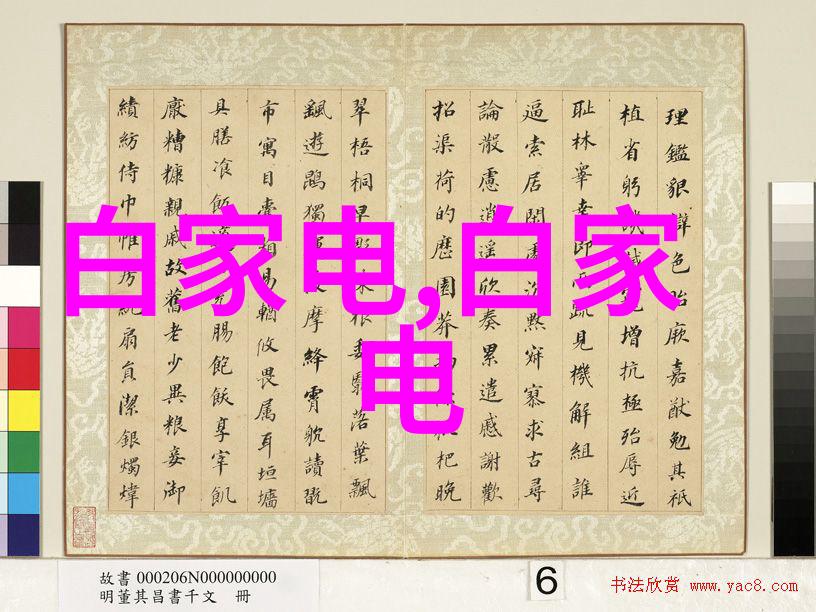 白家电,白家
电
理鑑貌辯色貽厥嘉猷勉其祗
植省躬譏誡寵增抗極殆辱近
耻林睾幸即兩疏見機解組誰
逼索居閑處沉黙寂寥求古尋
論散慮逍遥欣奏累遣慼謝歡
招渠荷的歷園莽抽條枇杷晚
翠梧桐早彫陳根委翳落葉飄
飖遊鵾獨摩絳霄躭讀翫
市寓目囊箱易輶攸畏属耳垣墻
具膳飡飯適充腸飽飫享宰飢
厭糟糠親戚故舊老少異粮妾御
績紡侍巾帷房紈扇員潔銀燭煒
故書 000206N000000000
明董其昌書千文 冊
6
书法欣赏 www.yac8.com